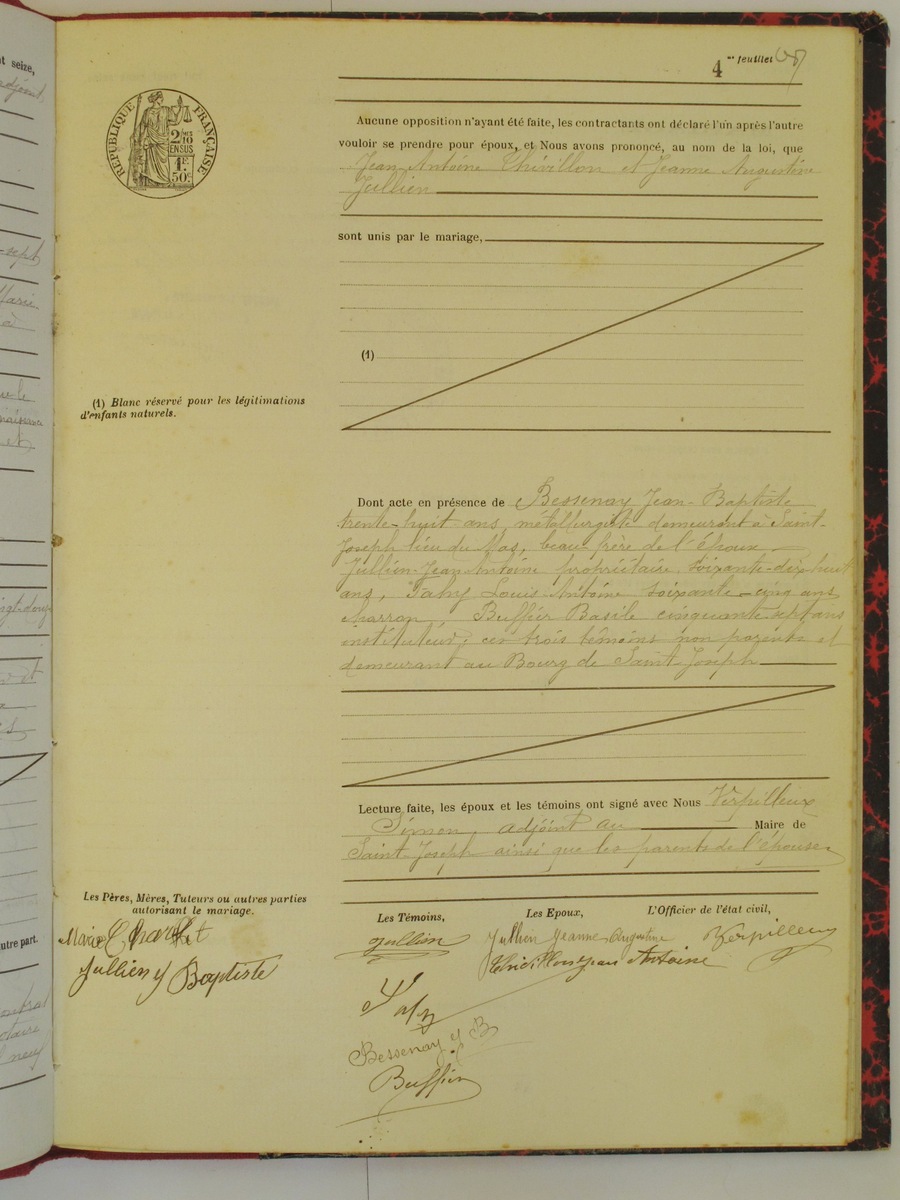 nt seize,
adjoint
4me feuillet
RÉPUBLIQUE FRANÇAISE
2/10 EN SUS
1F.50c
Aucune opposition n'ayant été faite, les contractants ont déclaré l'un après l'autre
vouloir se prendre pour époux, et Nous avons prononcé, au nom de la loi, que
Jean Antoine Thivillon et Jeanne Augustine
Jullien
sont unis par le mariage,
(1)
(1) Blanc réservé pour les légitimations
d'enfants naturels.
Dont acte en présence de Bessenay Jean-Baptiste
trente-huit ans, métallurgiste demeurant à Saint-
Joseph lieu du Mas, beau-frère de l'époux
Jullien Jean Antoine propriétaire, soixante-dix-huit
ans, Louis Antoine soixante-cinq ans
charron Basile cinquante sept ans
instituteur, ces trois témoins non parents et
demeurant au Bourg de Saint-Joseph
Lecture faite, les époux et les témoins ont signé avec Nous Verpilleux
Simon, adjoint au Maire de
Saint-Joseph ainsi que les parents de l'épouse
Les Pères, Mères, Tuteurs ou autres parties
autorisant le mariage.
Les Témoins,
Les Epoux,
L'Officier de l'état civil,
autre part.
Marie
Jullien J Baptiste
Jullien
Jullien Jeanne Augustine
Thivillon Jean Antoine
Verpilleux
Bessenay J B